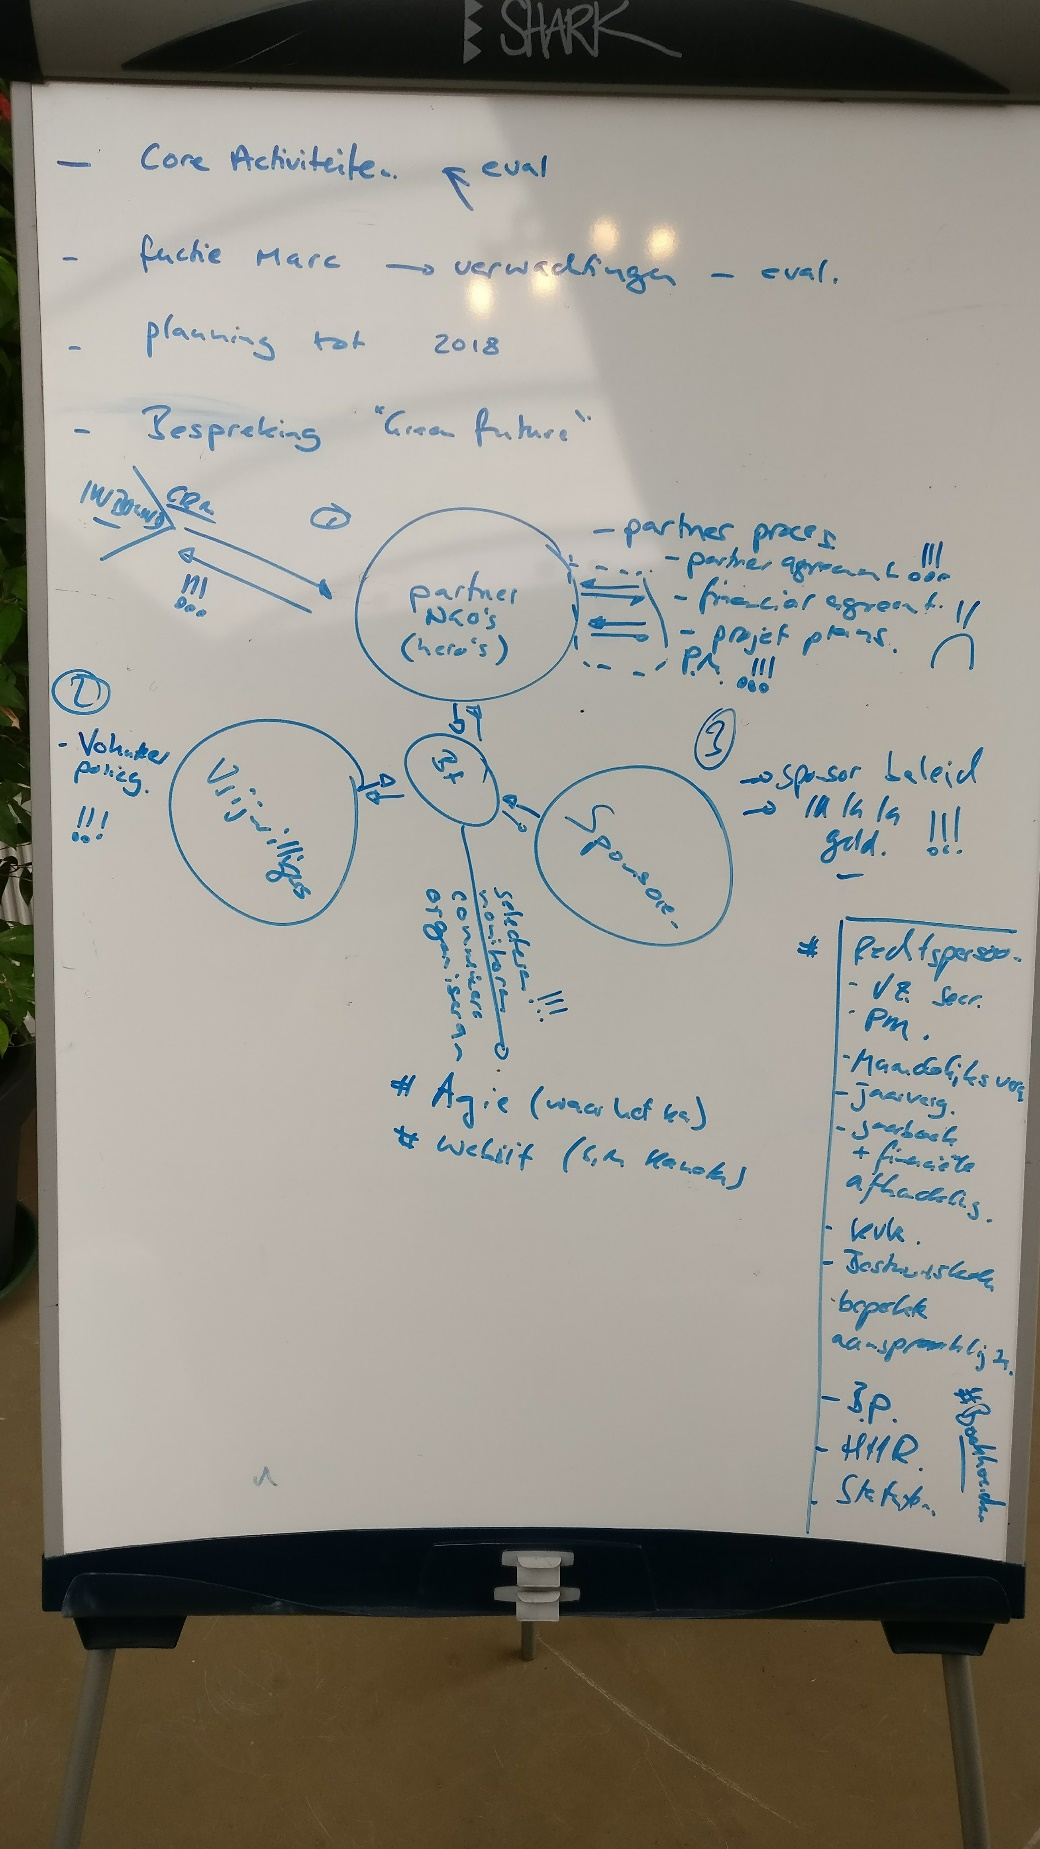 SHARK
- Core Activiteiten. eval
- functie Marc → verwachtingen - eval.
- planning tot 2018
- Bespreking "Green future"
INBOUND
!!!
partner
NGO's
(hero's)
- partner proces
- partner agreement !!!
- financial agreement. !!
- projet plans.
P.M. !!!
2
- Volunteer
policy.
!!!
Vrijwilligers
Bf
Sponsoren
3
→ sponsor beleid
→
geld. !!!
selecteren !!!
monitoren
organiseren
# Agie (waar het kan)
#
# Rechtspersoon.
- VZ. Secr.
- PM.
- Maandelijks verg
- Jaarverg.
- Jaarboek
+ financiële
afhandeling.
- kvk.
-
beperkte
aansprakelijkh.
- B.P.
- HHR.
- Statuten.
# Boekhouden